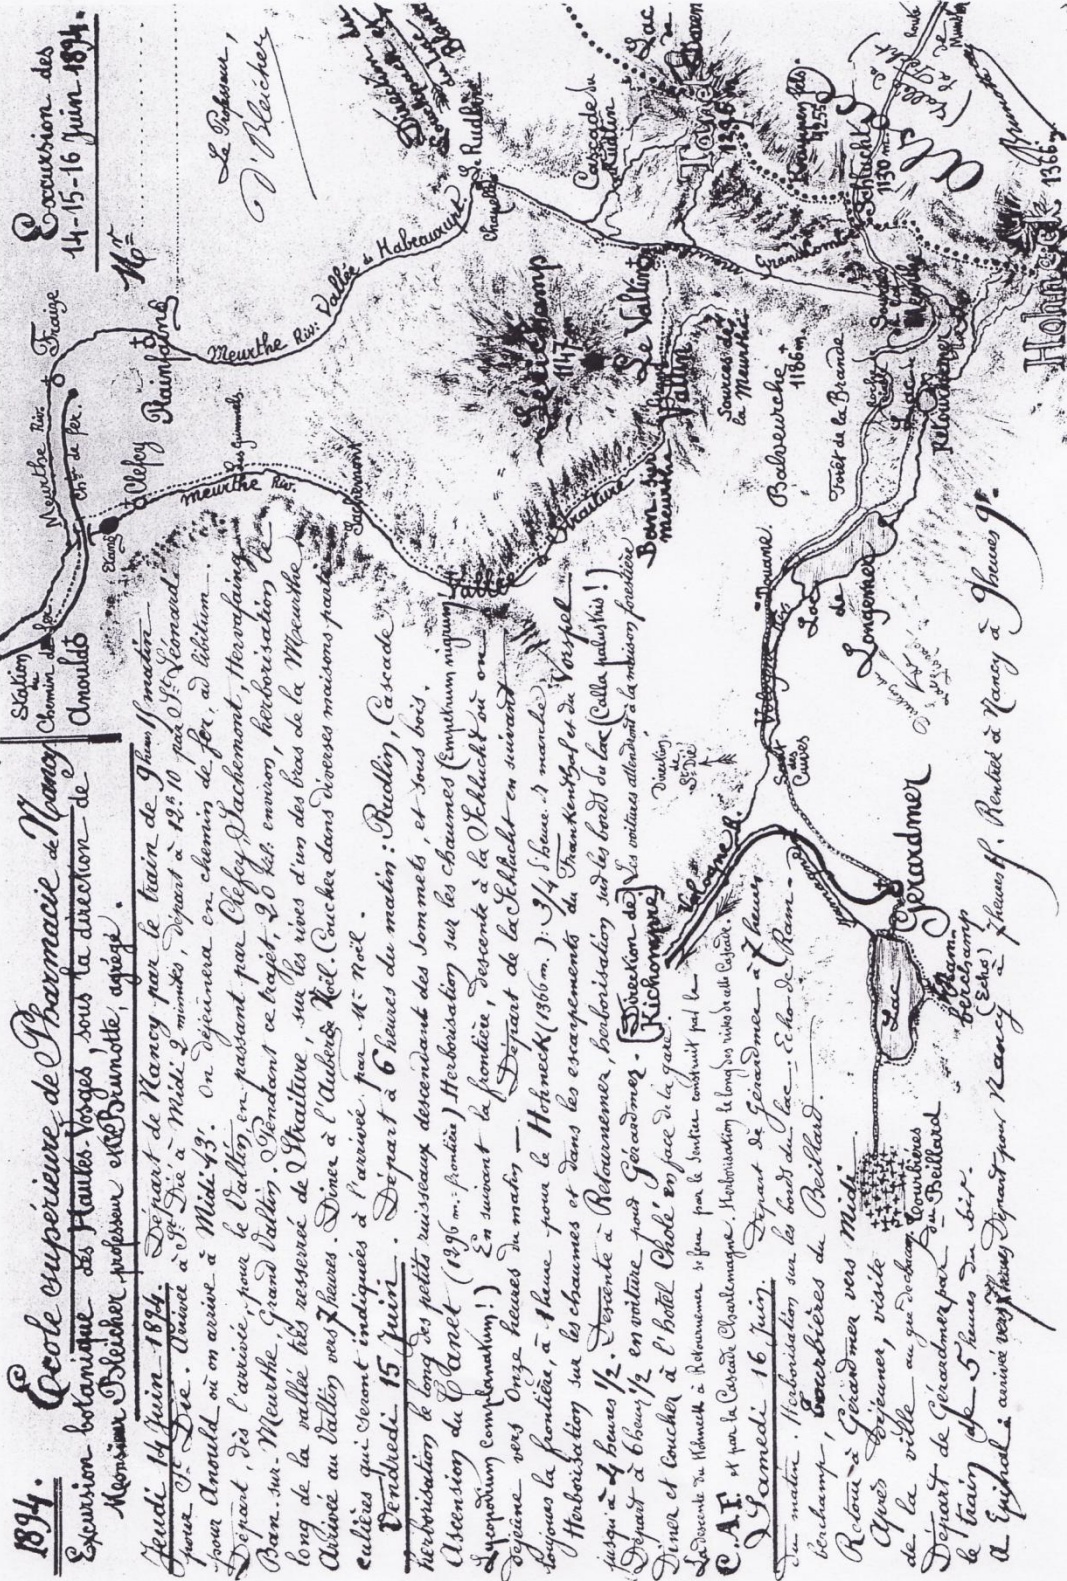 1894.
École supérieure de Pharmacie de Nancy
Excursion botanique des Hautes-Vosges, sous la direction de
Monsieur Bleicher professeur et Mr Brunotte, agrégé.
Jeudi 14 Juin 1894. Départ de Nancy par le train de 9 heures 11 matin
pour St Dié. Arrivée à St Dié à Midi 2 minutes, départ à 12h.10 par St Léonard
pour Anould où on arrive à Midi 43'. On déjeunera en chemin de fer, ad libitum.
Départ, dès l'arrivée, pour le Valtin, en passant par Clefcy, Sachemont, Hervafaing
Ban-sur-Meurthe, Grand Valtin. Pendant ce trajet, 20 kil. environ, herborisation le
long de la vallée très resserrée de Straiture, sur les rives d'un des bras de la Meurthe
Arrivée au Valtin vers 7 heures. Diner à l'Auberge Noël. Coucher dans diverses maisons parti-
culières qui seront indiquées à l'arrivée par Mr Noël.
Vendredi 15 Juin. Départ à 6 heures du matin : Rudlin, Cascade
herborisation le long des petits ruisseaux descendant des sommets, et sous bois.
Ascension du Tanet (1296 m. = frontière) Herborisation sur les chaumes (Empetrum nigrum,
Lycopodium complanatum!) En suivant la frontière, descente à la Schlucht où on
déjeune vers Onze heures du matin —. Départ de la Schlucht en suivant
toujours la frontière, à 1 heure pour le Hohneck (1366 m.): 3/4 d'heure de marche
Herborisation sur les chaumes et dans les escarpements du Frankenthal et du Vorspel
jusqu'à 4 heures 1/2. Descente à Retournemer, herborisation sur les bords du lac (Calla palustris!)
Départ à 6 heures 1/2 en voiture pour Gérardmer. Les voitures attendront à la maison forestière
Diner et coucher à l'hôtel Cholé en face de la gare.
La descente du Hohneck à Retournemer se fera par le Sentier construit par le
C.A.F. et par la Cascade Charlemagne. Herborisation le long des rives de cette Cascade.
Samedi 16 Juin. Départ de Gérardmer à 7 heures
du matin. Herborisation sur les bords du lac — Echo de Ram-
berchamp, Tourbières du Beillard.
Retour à Gérardmer vers Midi.
Après déjeuner, visite
de la ville au gré de chacun
Départ de Gérardmer par
le train de 5 heures du soir.
à Epinal: arrivée vers heures Départ pour Nancy à 7 heures 11. Rentrée à Nancy à 9 heures 9'.
Excursion des
14-15-16 Juin 1894.
Mr
Le Professeur,
Dr Bleicher
Station
du
Chemin de fer
Anould
Meurthe Riv.
Chn de fer.
Fraize
Etang
Clefcy
Plainfaing
Meurthe Riv.
Sachemont
Meurthe Riv: Vallée de Habeaurupt
Chapelle
Le Rudlin
Direction du
Lac Blanc
Cascade du
Rudlin
Lac
Tanet
1296 m
Sérichamp
1147 m
Le Valtin
Grand
Valtin
Sources de
la Meurthe
Vallée
Straiture
Ban sur
Meurthe
Grandhomb
Krappenfels
1255 m
Schlucht
1130 m
Alsace
Route
de
Munster
Balveurche
1186 m.
Forêt de la Brande
Roche
du
Lac
Retournemer
Hohneck 1366 m.
Lac
de
Longemer
Vologne Riv.
Saut
des
Cuves
Direction
de
St Dié
Direction de
Kichompré
Vologne R.
Gérardmer
Lac
Ram-
berchamp
(Echo)
Tourbières
du Beillard